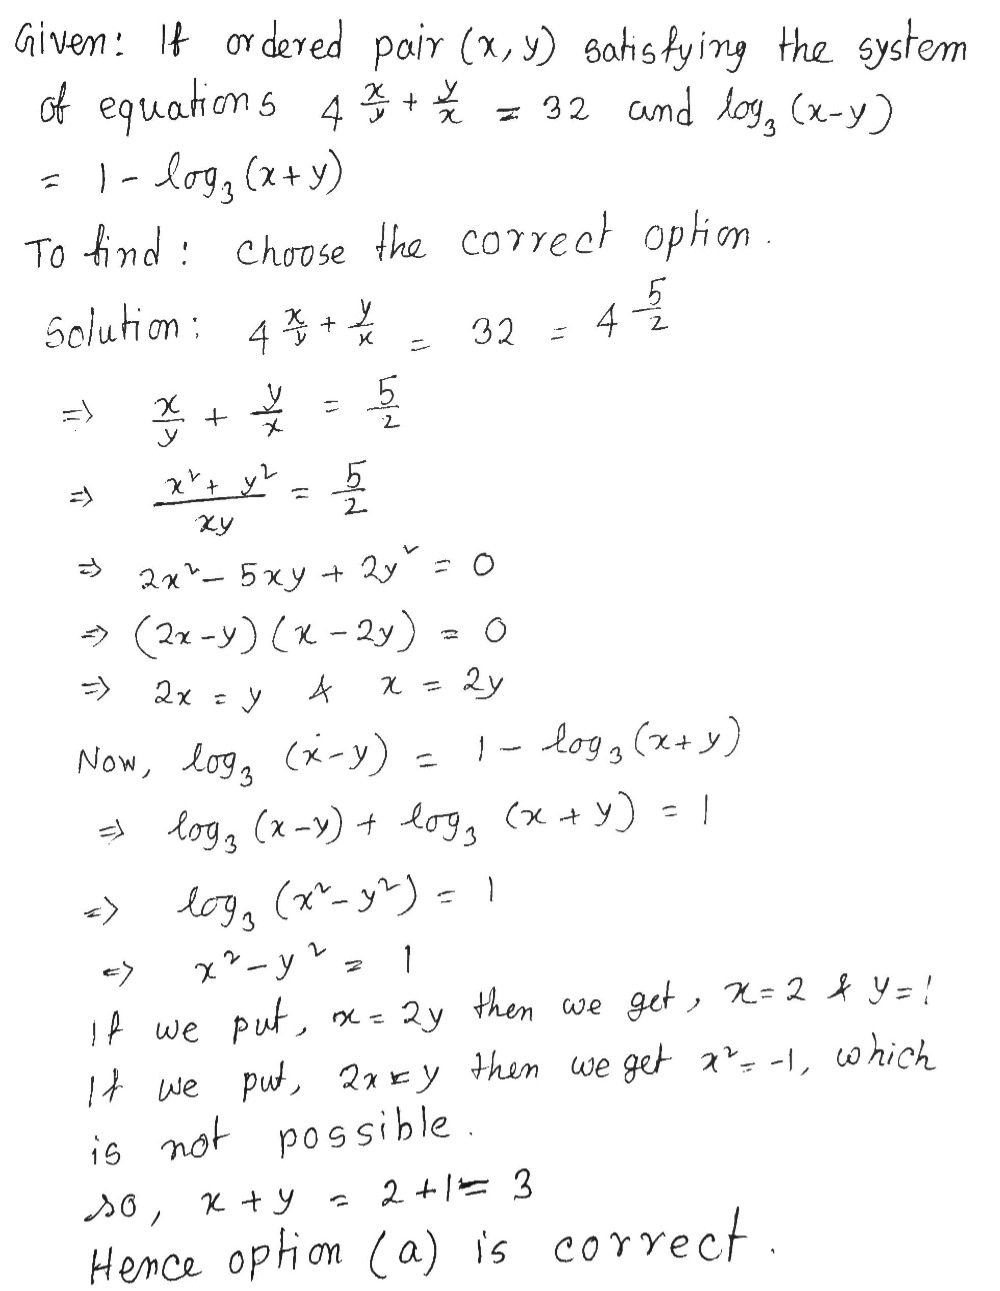 Given: If ordered pair (x, y) satisfying the system
of equations 4^(x/y + y/x) = 32 and log₃ (x-y)
= 1 - log₃ (x+y)
To find: Choose the correct option.
Solution: 4^(x/y + y/x) = 32 = 4^(5/2)
⇒ x/y + y/x = 5/2
⇒ (x² + y²)/xy = 5/2
⇒ 2x² - 5xy + 2y² = 0
⇒ (2x-y) (x-2y) = 0
⇒ 2x = y & x = 2y
Now, log₃ (x-y) = 1 - log₃ (x+y)
⇒ log₃ (x-y) + log₃ (x+y) = 1
⇒ log₃ (x²-y²) = 1
⇒ x²-y² = 1
If we put, x = 2y then we get, x=2 & y=1
If we put, 2x=y then we get x²=-1, which
is not possible.
so, x + y = 2+1= 3
Hence option (a) is correct.